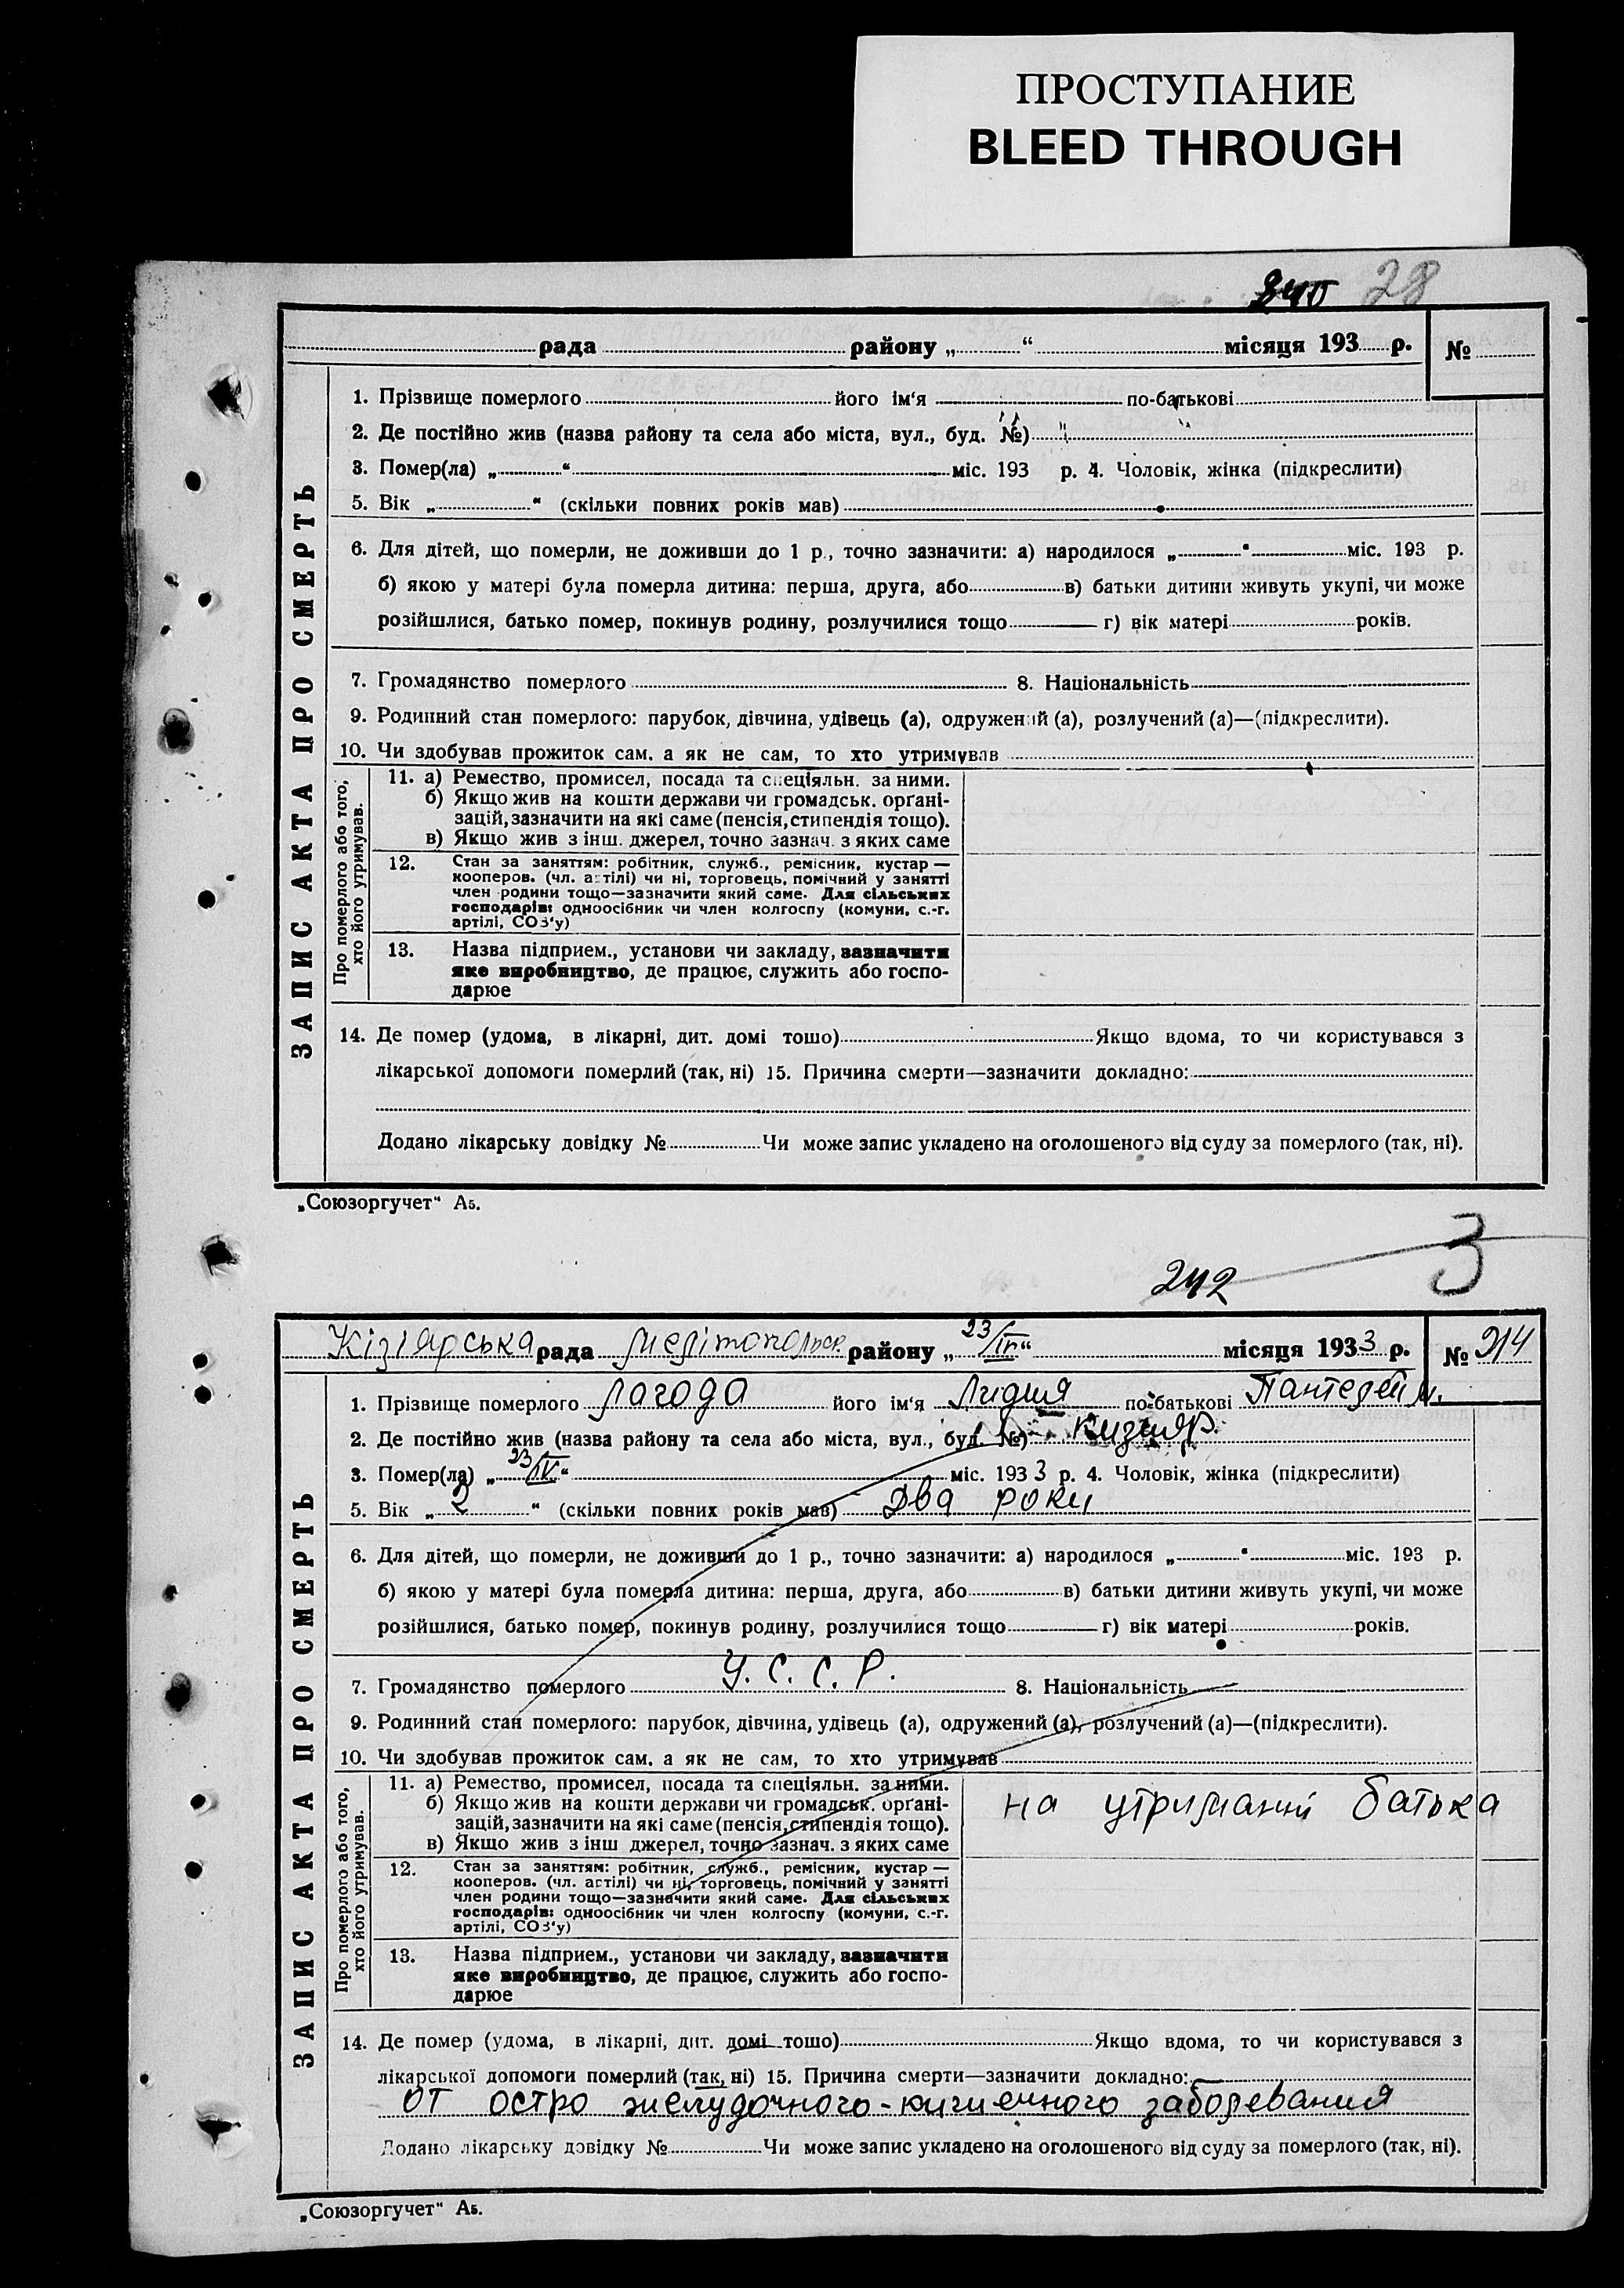 ПРОСТУПАНИЕ
BLEED THROUGH
240 28
рада району „ “ місяця 193 р. №
ЗАПИС АКТА ПРО СМЕРТЬ
1. Прізвище померлого його ім‘я по-батькові
2. Де постійно жив (назва району та села або міста, вул., буд. №)
3. Помер(ла) „ “ міс. 193 р. 4. Чоловік, жінка (підкреслити)
5. Вік „ “ (скільки повних років мав)
6. Для дітей, що померли, не доживши до 1 р., точно зазначити: а) народилося „ “ міс. 193 р.
б) якою у матері була померла дитина: перша, друга, або в) батьки дитини живуть укупі, чи може
розійшлися, батько помер, покинув родину, розлучилися тощо г) вік матері років.
7. Громадянство померлого 8. Національність
9. Родинний стан померлого: парубок, дівчина, удівець (а), одружений (а), розлучений (а)—(підкреслити).
10. Чи здобував прожиток сам, а як не сам, то хто утримував
Про померлого або того, хто його утримував.
11. а) Ремество, промисел, посада та спеціяльн. за ними.
б) Якщо жив на кошти держави чи громадськ. орґані-
зацій, зазначити на які саме (пенсія, стипендія тощо).
в) Якщо жив з інш. джерел, точно зазнач. з яких саме
12. Стан за заняттям: робітник, служб., ремісник, кустар —
кооперов. (чл. артілі) чи ні, торговець, помічний у занятті
член родини тощо—зазначити який саме. Для сільських
господарів: одноосібник чи член колгоспу (комуни, с.-г.
артілі, СОЗ‘у)
13. Назва підприєм., установи чи закладу, зазначити
яке виробництво, де працює, служить або госпо-
дарює
14. Де помер (удома, в лікарні, дит. домі тощо) Якщо вдома, то чи користувався з
лікарської допомоги померлий (так, ні) 15. Причина смерти—зазначити докладно:
Додано лікарську довідку № Чи може запис укладено на оголошеного від суду за померлого (так, ні).
„Союзоргучет“ А5.
242 3
Кізіярська рада Мелітопольск. району „23/IV“ місяця 1933 р. № 914
ЗАПИС АКТА ПРО СМЕРТЬ
1. Прізвище померлого Лагода його ім‘я Лидия по-батькові
2. Де постійно жив (назва району та села або міста, вул., буд. №) Кизияр.
3. Помер(ла) „23/IV“ міс. 1933 р. 4. Чоловік, жінка (підкреслити)
5. Вік „2“ (скільки повних років мав) Два роки
6. Для дітей, що померли, не доживши до 1 р., точно зазначити: а) народилося „ “ міс. 193 р.
б) якою у матері була померла дитина: перша, друга, або в) батьки дитини живуть укупі, чи може
розійшлися, батько помер, покинув родину, розлучилися тощо г) вік матері років.
7. Громадянство померлого У.С.С.Р. 8. Національність
9. Родинний стан померлого: парубок, дівчина, удівець (а), одружений (а), розлучений (а)—(підкреслити).
10. Чи здобував прожиток сам, а як не сам, то хто утримував
Про померлого або того, хто його утримував.
11. а) Ремество, промисел, посада та спеціяльн. за ними.
б) Якщо жив на кошти держави чи громадськ. орґані-
зацій, зазначити на які саме (пенсія, стипендія тощо).
в) Якщо жив з інш джерел, точно зазнач. з яких саме
на утриманні батька
12. Стан за заняттям: робітник, служб., ремісник, кустар —
кооперов. (чл. артілі) чи ні, торговець, помічний у занятті
член родини тощо—зазначити який саме. Для сільських
господарів: одноосібник чи член колгоспу (комуни, с.-г.
артілі, СОЗ‘у)
13. Назва підприєм., установи чи закладу, зазначити
яке виробництво, де працює, служить або госпо-
дарює
14. Де помер (удома, в лікарні, дит. домі тощо) Якщо вдома, то чи користувався з
лікарської допомоги померлий (так, ні) 15. Причина смерти—зазначити докладно:
от остро желудочного-кишечного заболевания
Додано лікарську довідку № Чи може запис укладено на оголошеного від суду за померлого (так, ні).
„Союзоргучет“ А5.